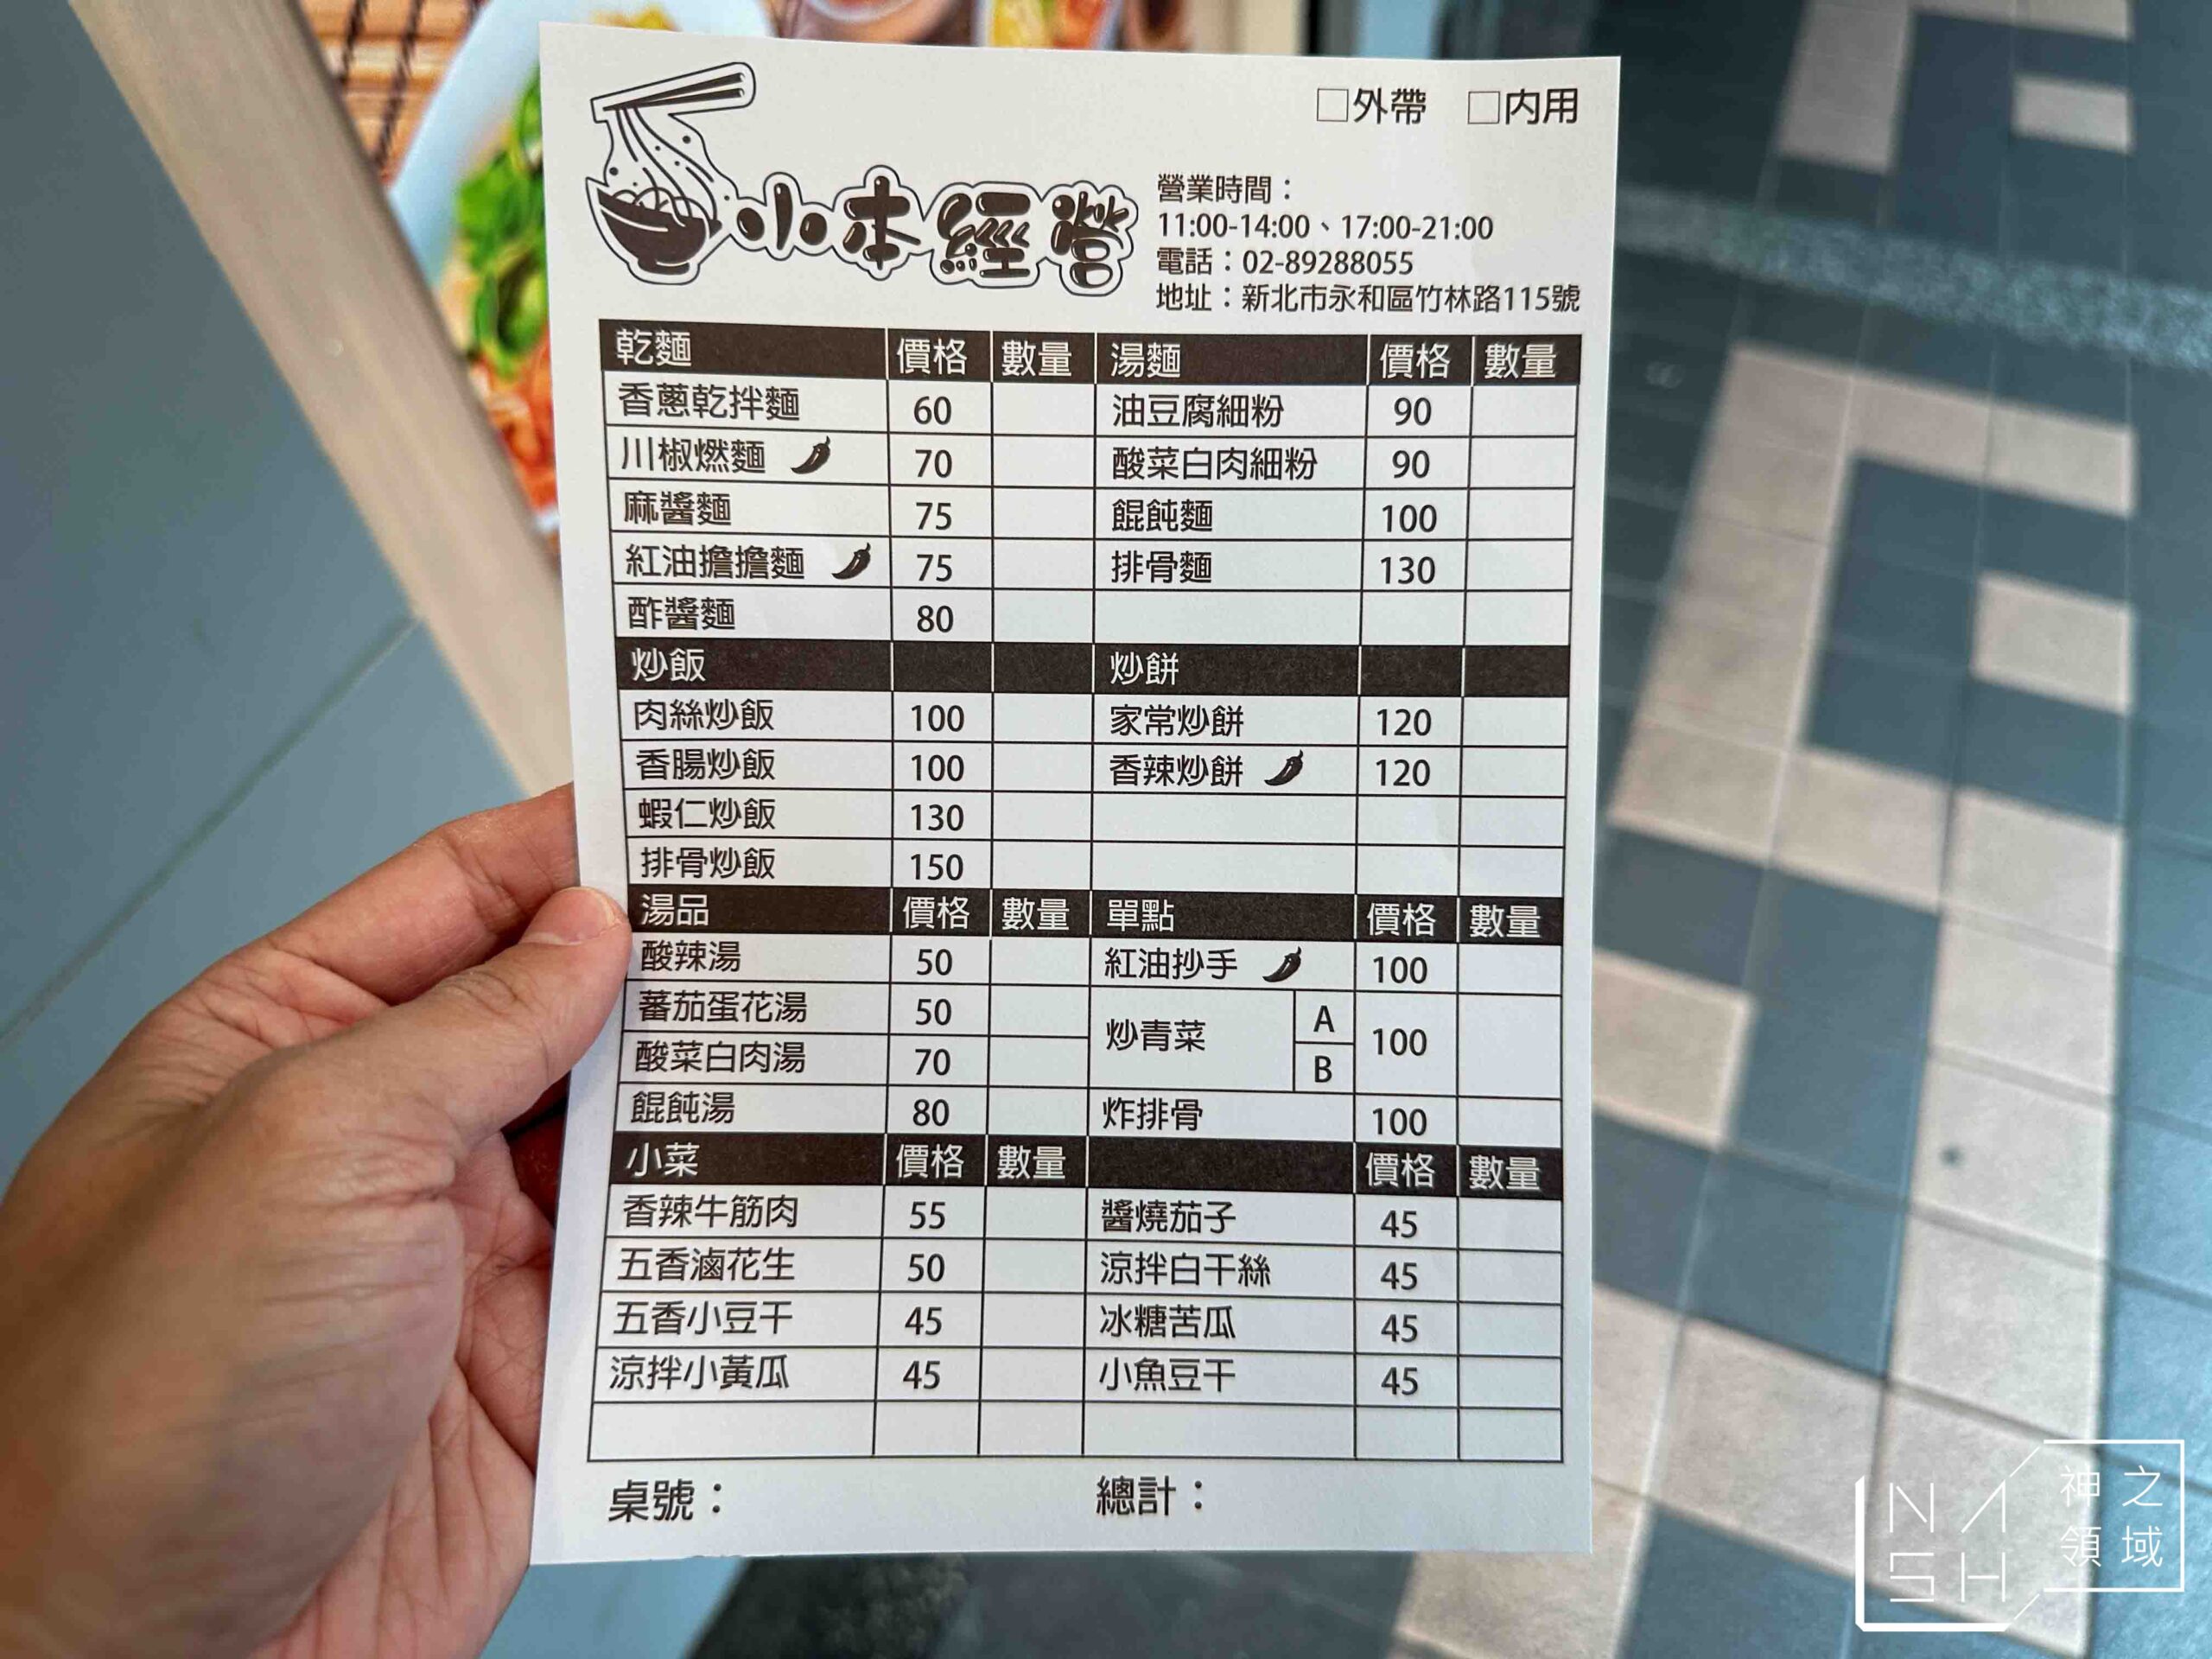 □外帶 □內用
小本經營
營業時間：
11:00-14:00、17:00-21:00
電話：02-89288055
地址：新北市永和區竹林路115號
乾麵 價格 數量 湯麵 價格 數量
香蔥乾拌麵 60 油豆腐細粉 90
川椒燃麵 70 酸菜白肉細粉 90
麻醬麵 75 餛飩麵 100
紅油擔擔麵 75 排骨麵 130
酢醬麵 80
炒飯 炒餅
肉絲炒飯 100 家常炒餅 120
香腸炒飯 100 香辣炒餅 120
蝦仁炒飯 130
排骨炒飯 150
湯品 價格 數量 單點 價格 數量
酸辣湯 50 紅油抄手 100
蕃茄蛋花湯 50 炒青菜 A 100
酸菜白肉湯 70 B
餛飩湯 80 炸排骨 100
小菜 價格 數量 價格 數量
香辣牛筋肉 55 醬燒茄子 45
五香滷花生 50 涼拌白干絲 45
五香小豆干 45 冰糖苦瓜 45
涼拌小黃瓜 45 小魚豆干 45
桌號： 總計：
NASH 神之領域